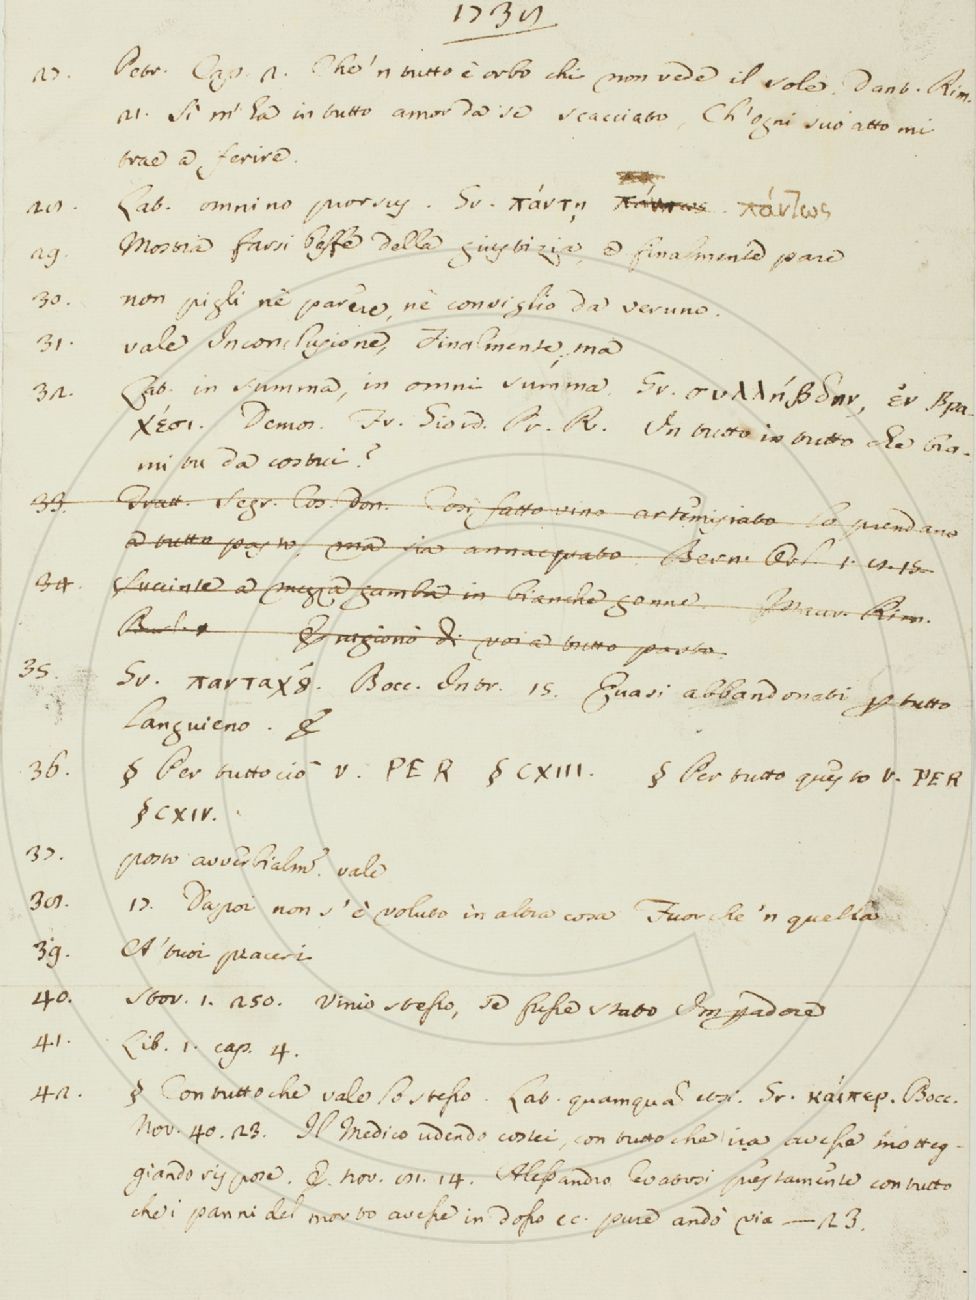 1738
27. Petr. Cap. 2. Che'n tutto è orbo chi non vede il sole. Dant. Rim.
21. Sì m'ha in tutto amor da se scacciato, Ch'ogni suo atto mi
trae a ferire.
28. Lat. omnino prorsus. Gr. πάντη πάντως. πάντως
29. Mostra farsi beffe della giustizia, e finalmente pare
30. non pigli nè parere, nè consiglio da veruno.
31. vale Inconclusione, Finalmente, ma
32. Lat. in summa, in omni summa. Gr. συλλήβδην, ἐν βρα-
χέσι. Demos. Fr. Giord. Pr. R. In tutto in tutto che bra-
mi tu da costui?
33. Tratt. segr. cos. don. Così fatto vino artemisiato lo prendano
a tutto pasto, ma sia annacquato. Bern. Orl. 1. 8. 15.
34. Succinte a mezza gamba in bianche gonne. Maur. Rim.
E ragionò di voi a tutto pasto.
35. Gr. πανταχȣ. Bocc. Intr. 15. Quasi abbandonati p tutto
languieno. E
36. § Per tuttociò v. PER § CXIII. § Per tutto questo v. PER
§ CXIV.
37. posto avverbialm. vale
38. 17. Dapoi non s'è voluto in altra cosa Fuorche'n quella
39. A' tuoi piaceri
40. stor. 1. 250. Vinio stesso, se fusse stato Impadore
41. Lib. 1. cap. 4.
42. § Contuttochè vale lo stesso. Lat. quamquā etsi. Gr. καίπερ. Bocc.
Nov. 40. 23. Il Medico udendo costei, con tutto che ira avesse motteg-
giando rispose. E nov. 81. 14. Alessandro levatosi prestamente con tutto
che i panni del morto avesse in dosso ec. pure andò via — 23.